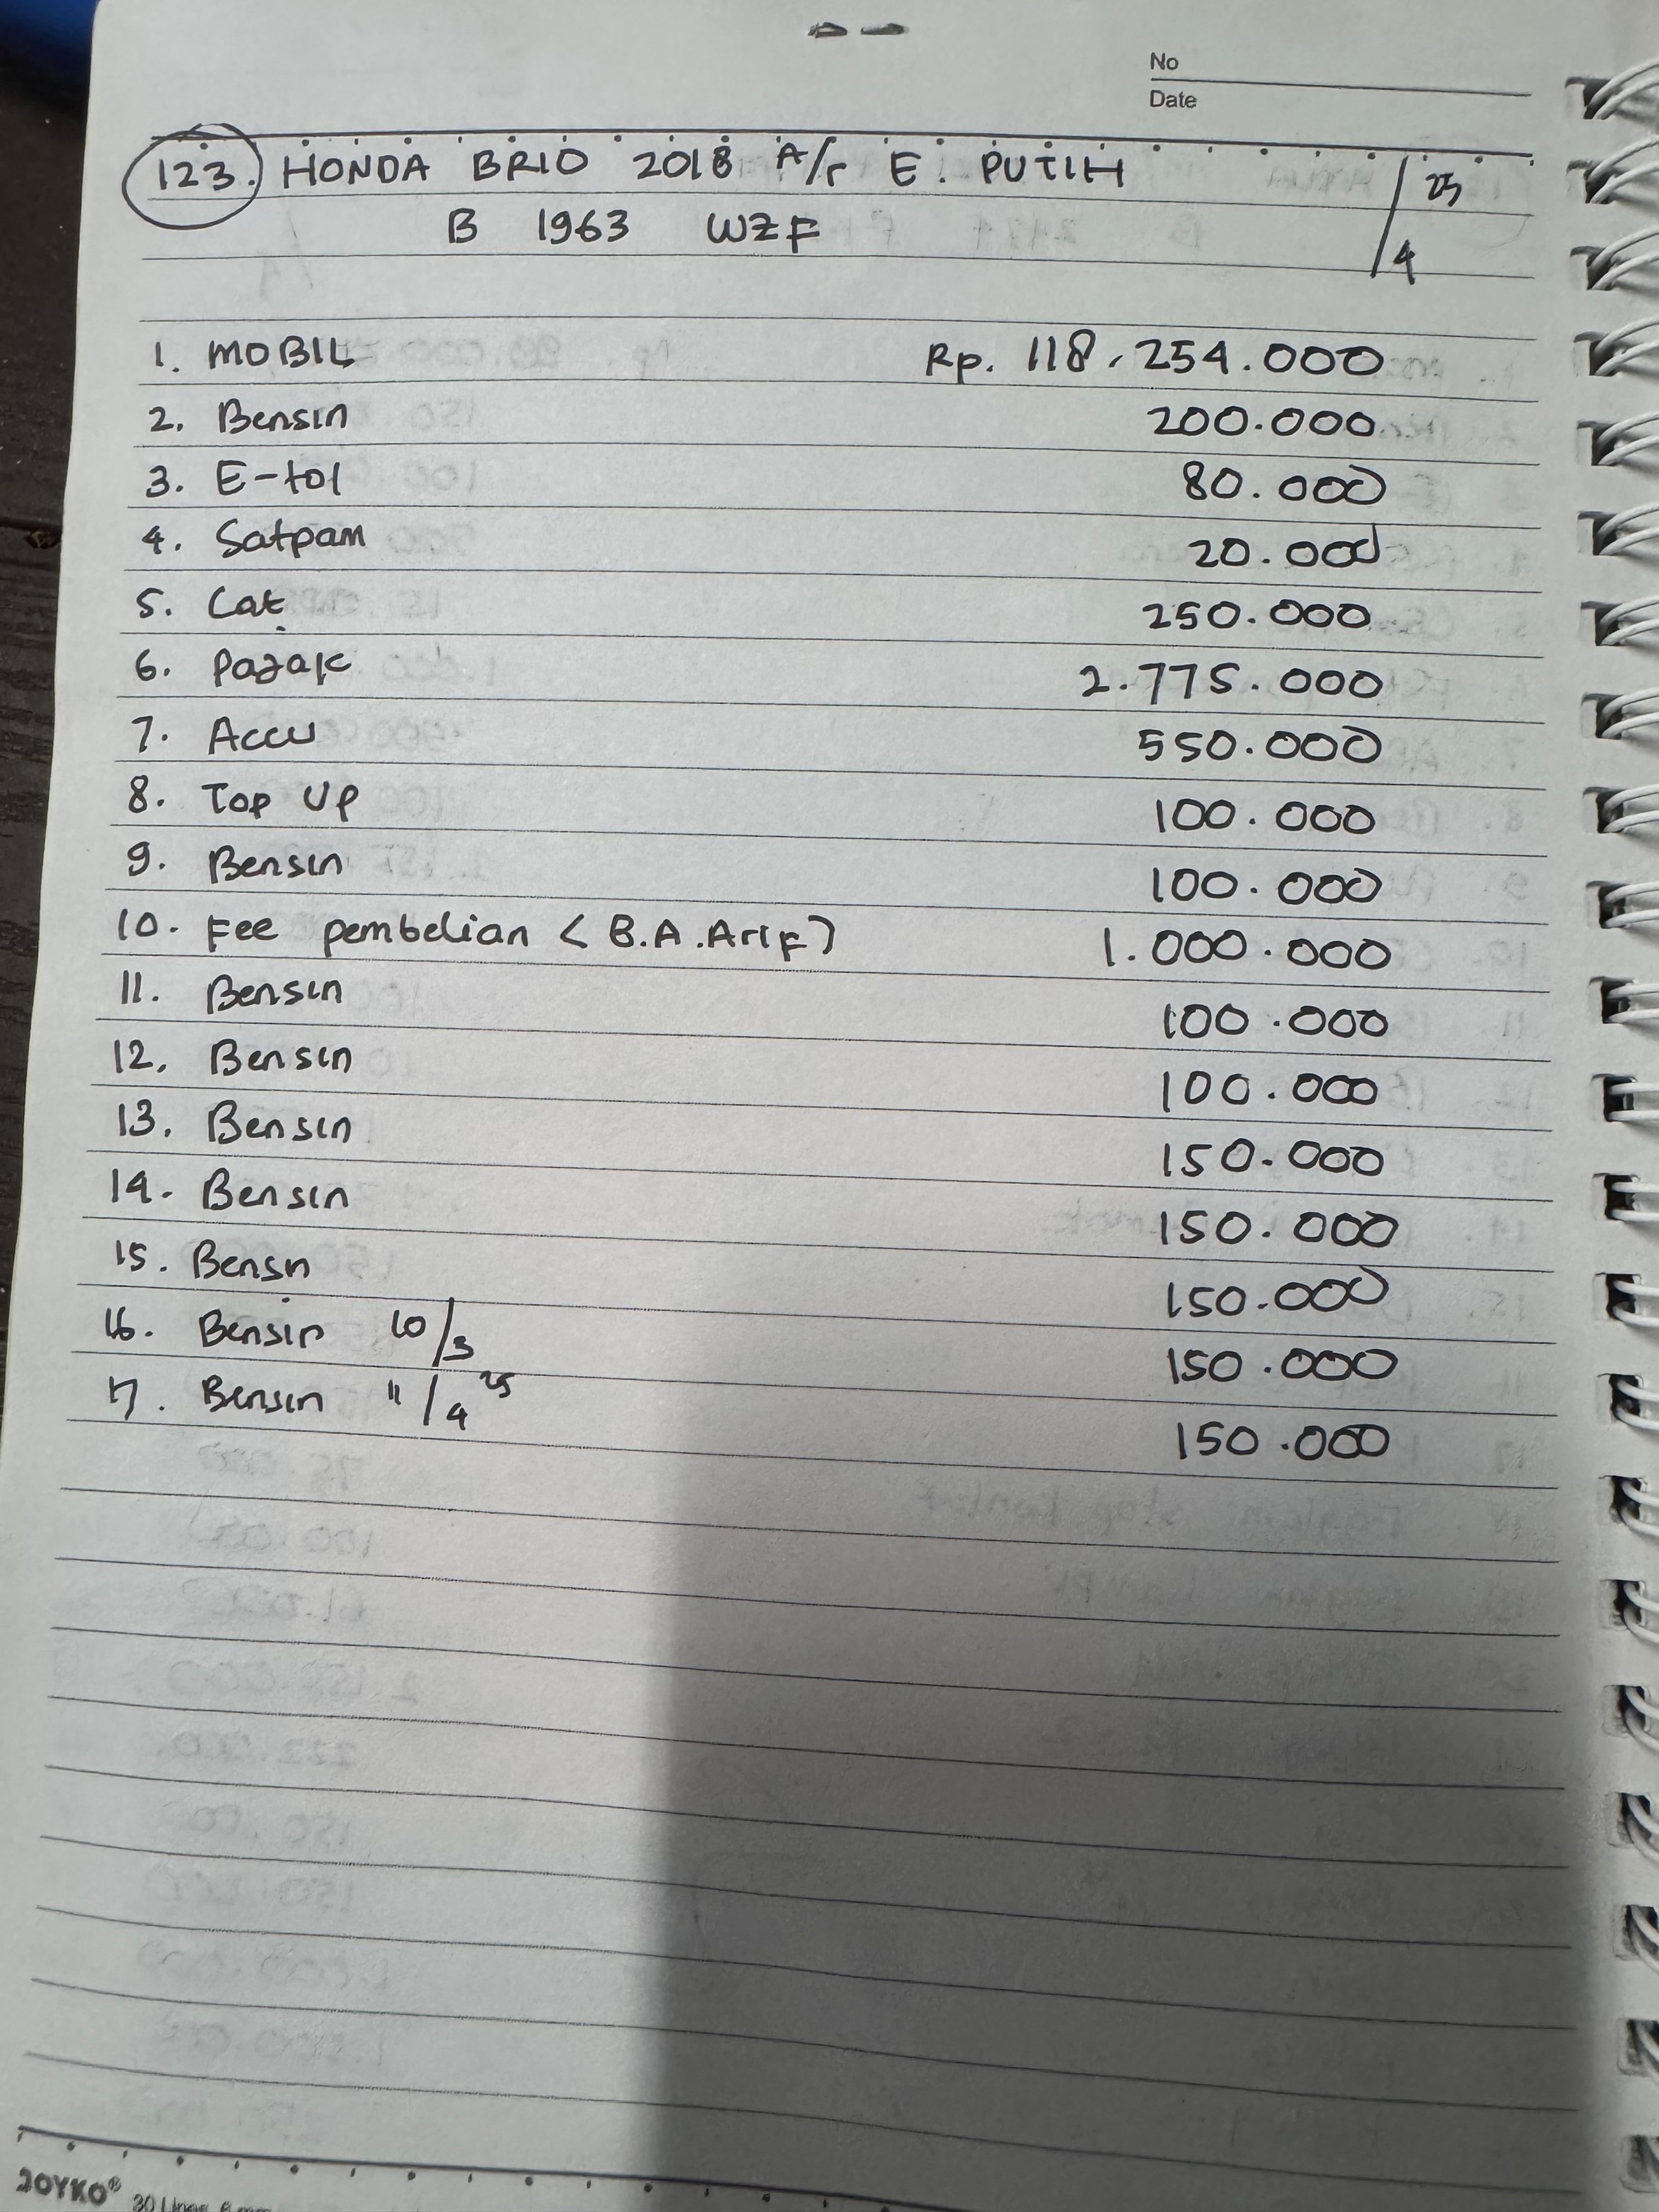 No
Date
123. HONDA BRIO 2018 A/T E. PUTIH / 25
B 1963 WZF / 4
1. MOBIL Rp. 118.254.000
2. Bensin 200.000
3. E-tol 80.000
4. Satpam 20.000
5. Cat 250.000
6. Pajak 2.775.000
7. Accu 550.000
8. Top Up 100.000
9. Bensin 100.000
10. Fee pembelian (B.A.Arif) 1.000.000
11. Bensin 100.000
12. Bensin 100.000
13. Bensin 150.000
14. Bensin 150.000
15. Bensn 150.000
16. Bensin 10/3 150.000
17. Bensin 11/4 25 150.000
JOYKO®
30 Lines